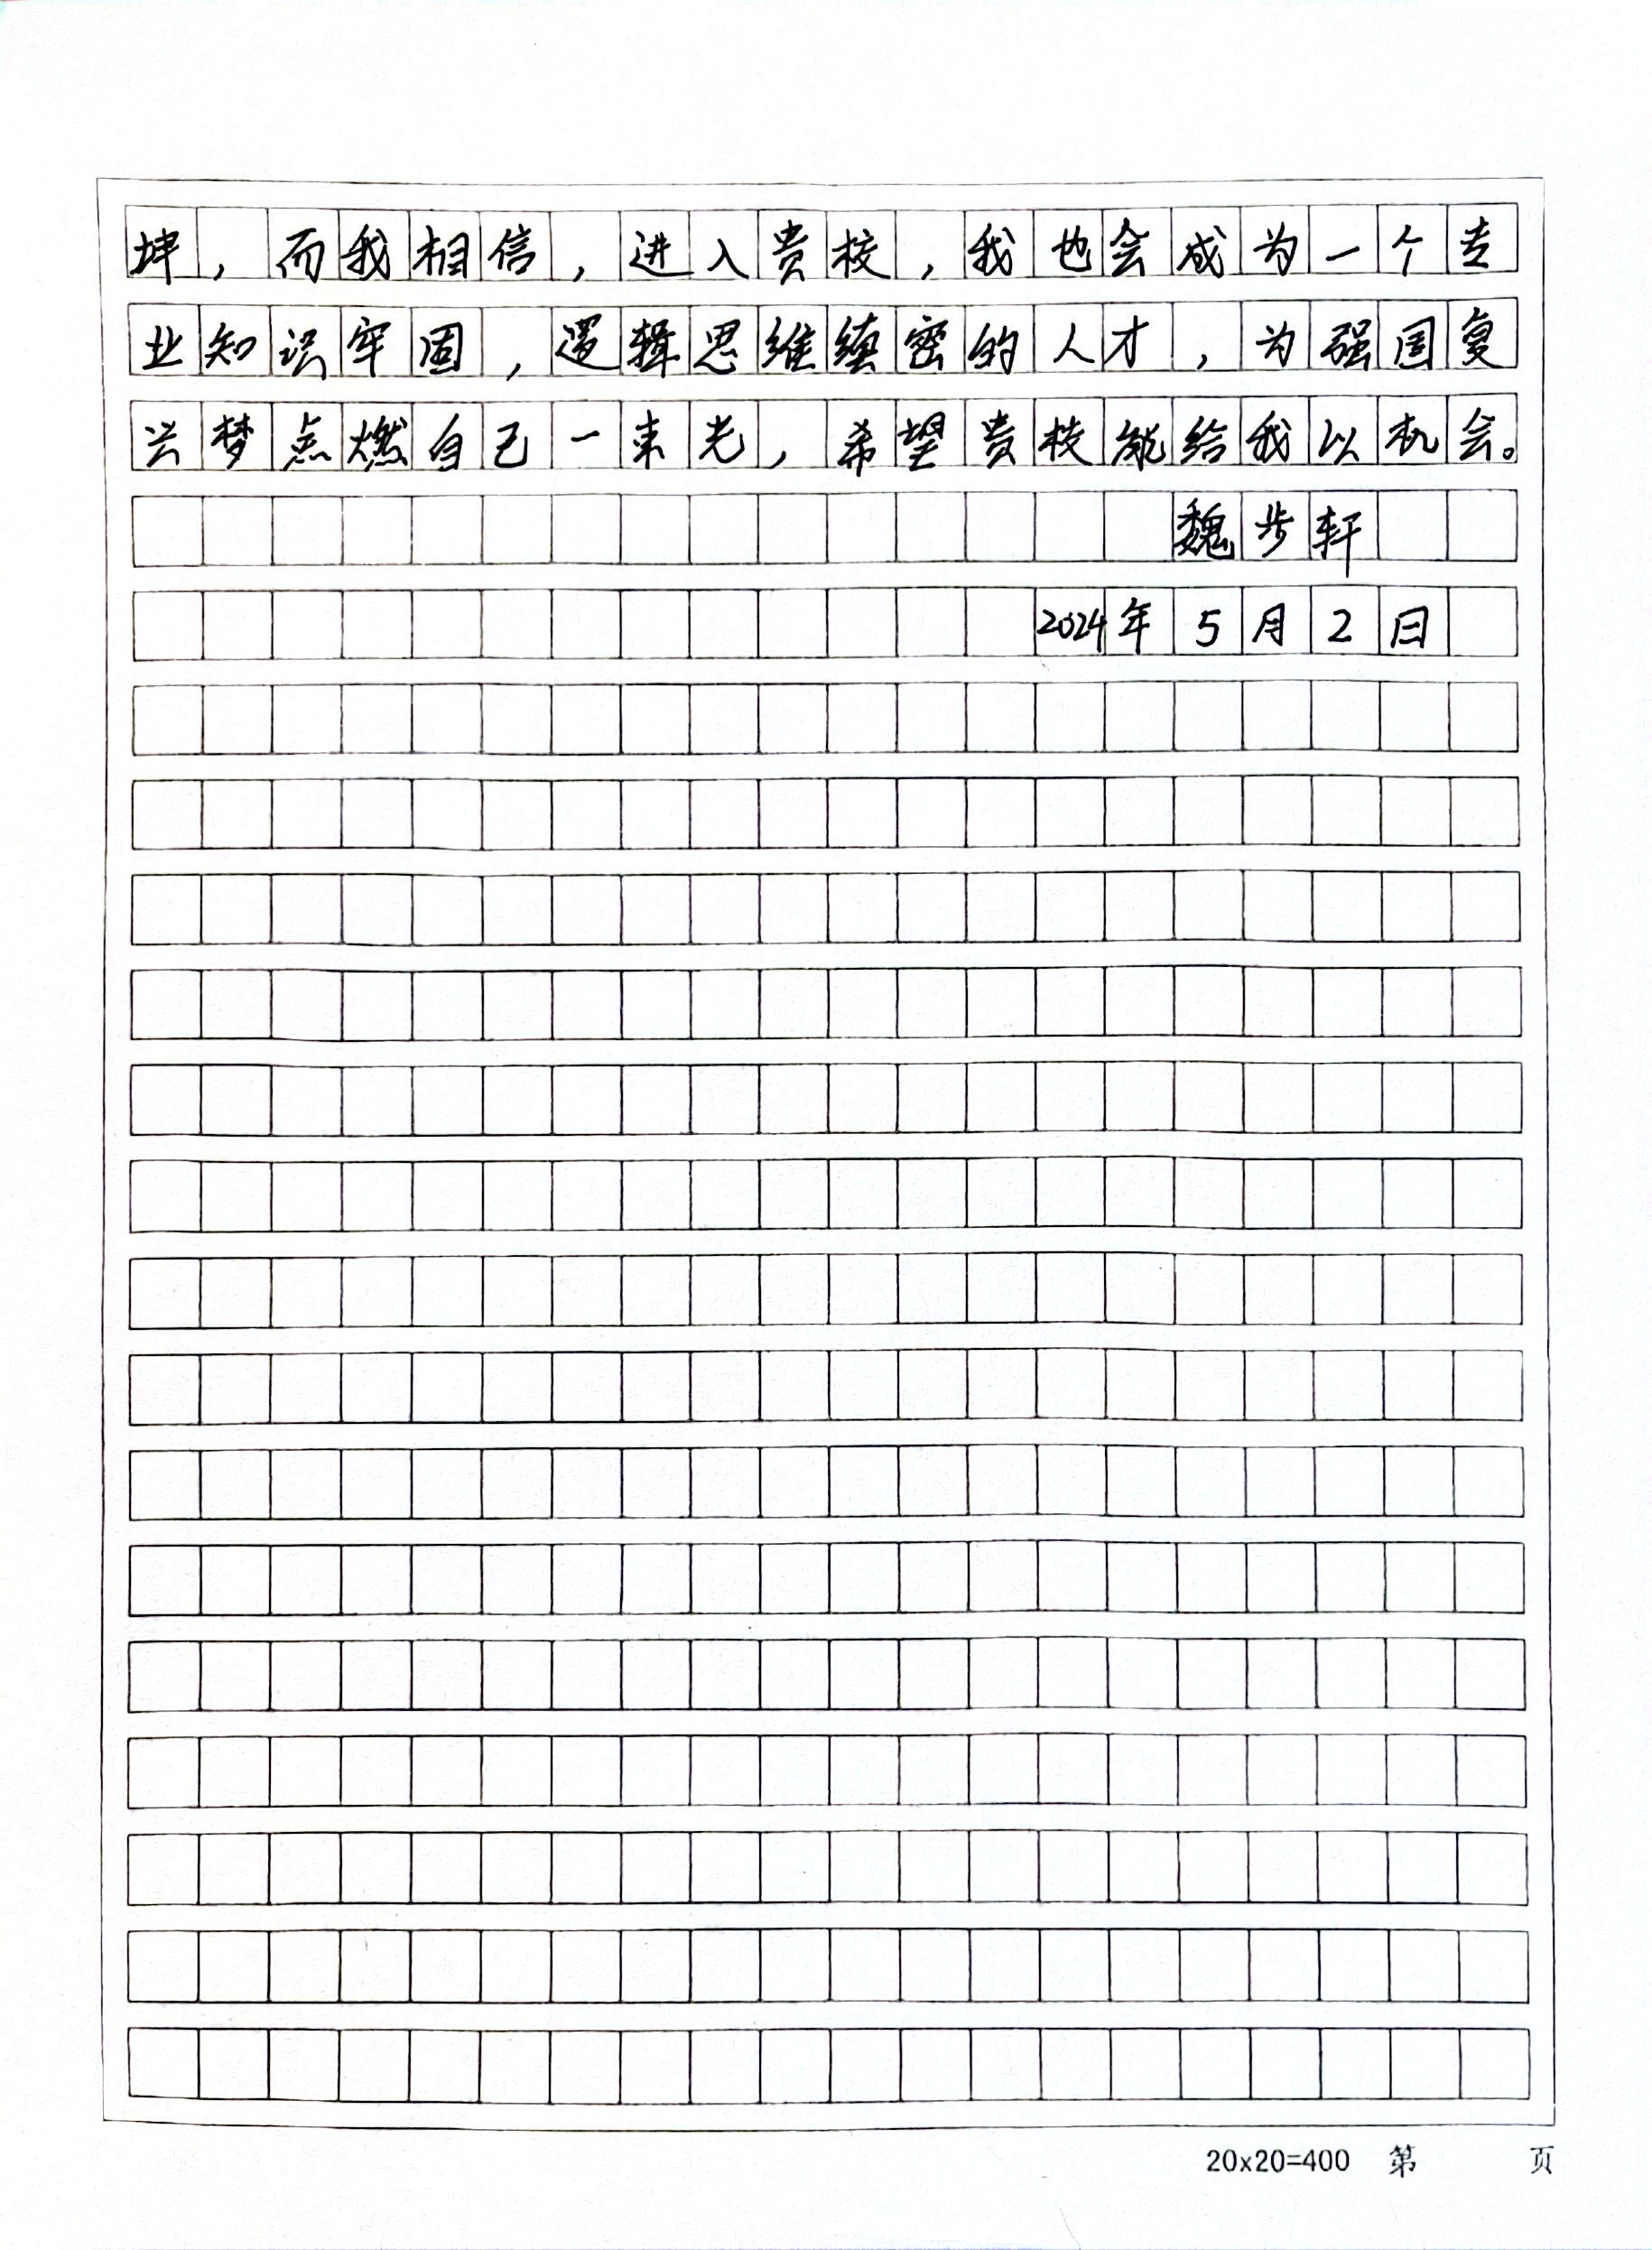 坤，而我相信，进入贵校，我也会成为一个专
业知识牢固，逻辑思维缜密的人才，为强国复
兴梦点燃自己一束光，希望贵校能给我以机会。
魏步轩
2024年5月2日
20x20=400 第 页